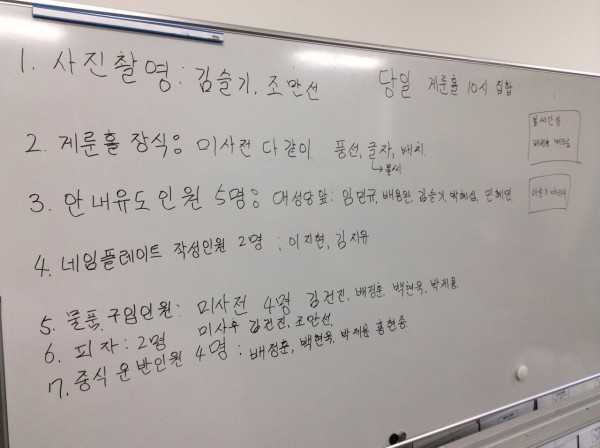 1. 사진촬영: 김슬기, 조만선
당일 게룬홀 10시 집합
2. 게룬홀 장식: 미사전 다같이 풍선, 글자, 배치.
→봉세
3. 안내유도인원 5명: 대성당앞: 임민규, 배용완, 김슬기, 박혜섭, 민혜연
4. 네임플레이트 작성인원 2명: 이지현, 김지유
5. 물품구입인원: 미사전 4명 김건진, 배정훈, 백현욱, 박제윤
6. 피자: 2명 미사후 김건진, 조만선,
7. 중식 운반인원 4명: 배정훈, 백현욱, 박제윤 홍현종